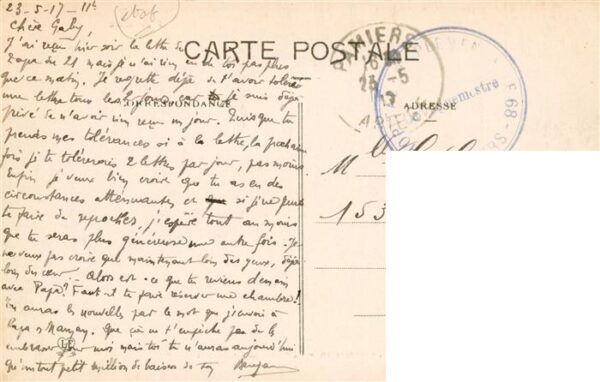 23-5-17-11h
Chère Gaby,
J'ai reçu hier soir la lettre de
CARTE POSTALE
Papa du 21 mais je n'ai rien eu de toi pas plus
que ce matin. Je regrette déjà de t'avoir toléré
une lettre tous les jours car je suis déjà
CORRESPONDANCE
ADRESSE
privé de n'avoir rien reçu un jour. Puisque tu
prends mes tolérances si à la lettre, la prochaine
fois je te tolérerais 2 lettres par jour, pas moins
Enfin je veux bien croire que tu as eu des
circonstances atténuantes et si je ne peux
te faire de reproches, j'espère tout au moins
que tu seras plus généreuse une autre fois. Je
ne veux pas croire que maintenant loin des yeux, déjà
loin du cœur... Alors est-ce que tu reviens demain
avec Papa? Faut-il te faire réserver une chambre?!
Tu auras les nouvelles par le mot que j'envoie à
Papa et Maman. Que ça ne t'empêche pas de les
embrasser pour moi mais toi tu n'auras aujourd'hui
qu'un tout petit million de baisers de ton
PAMIERS
23-5
17
ARIEGE
Vaguemestre
68
Mlle
153
LF